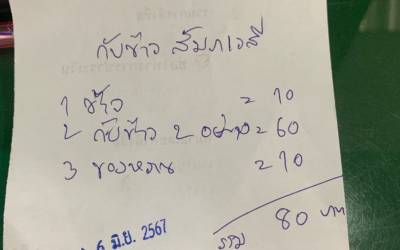 กับข้าว สัมภเวสี
1 ข้าว = 10
2 กับข้าว 2 อย่าง = 60
3 ของหวาน = 10
รวม 80 บาท
6 มิ.ย. 2567